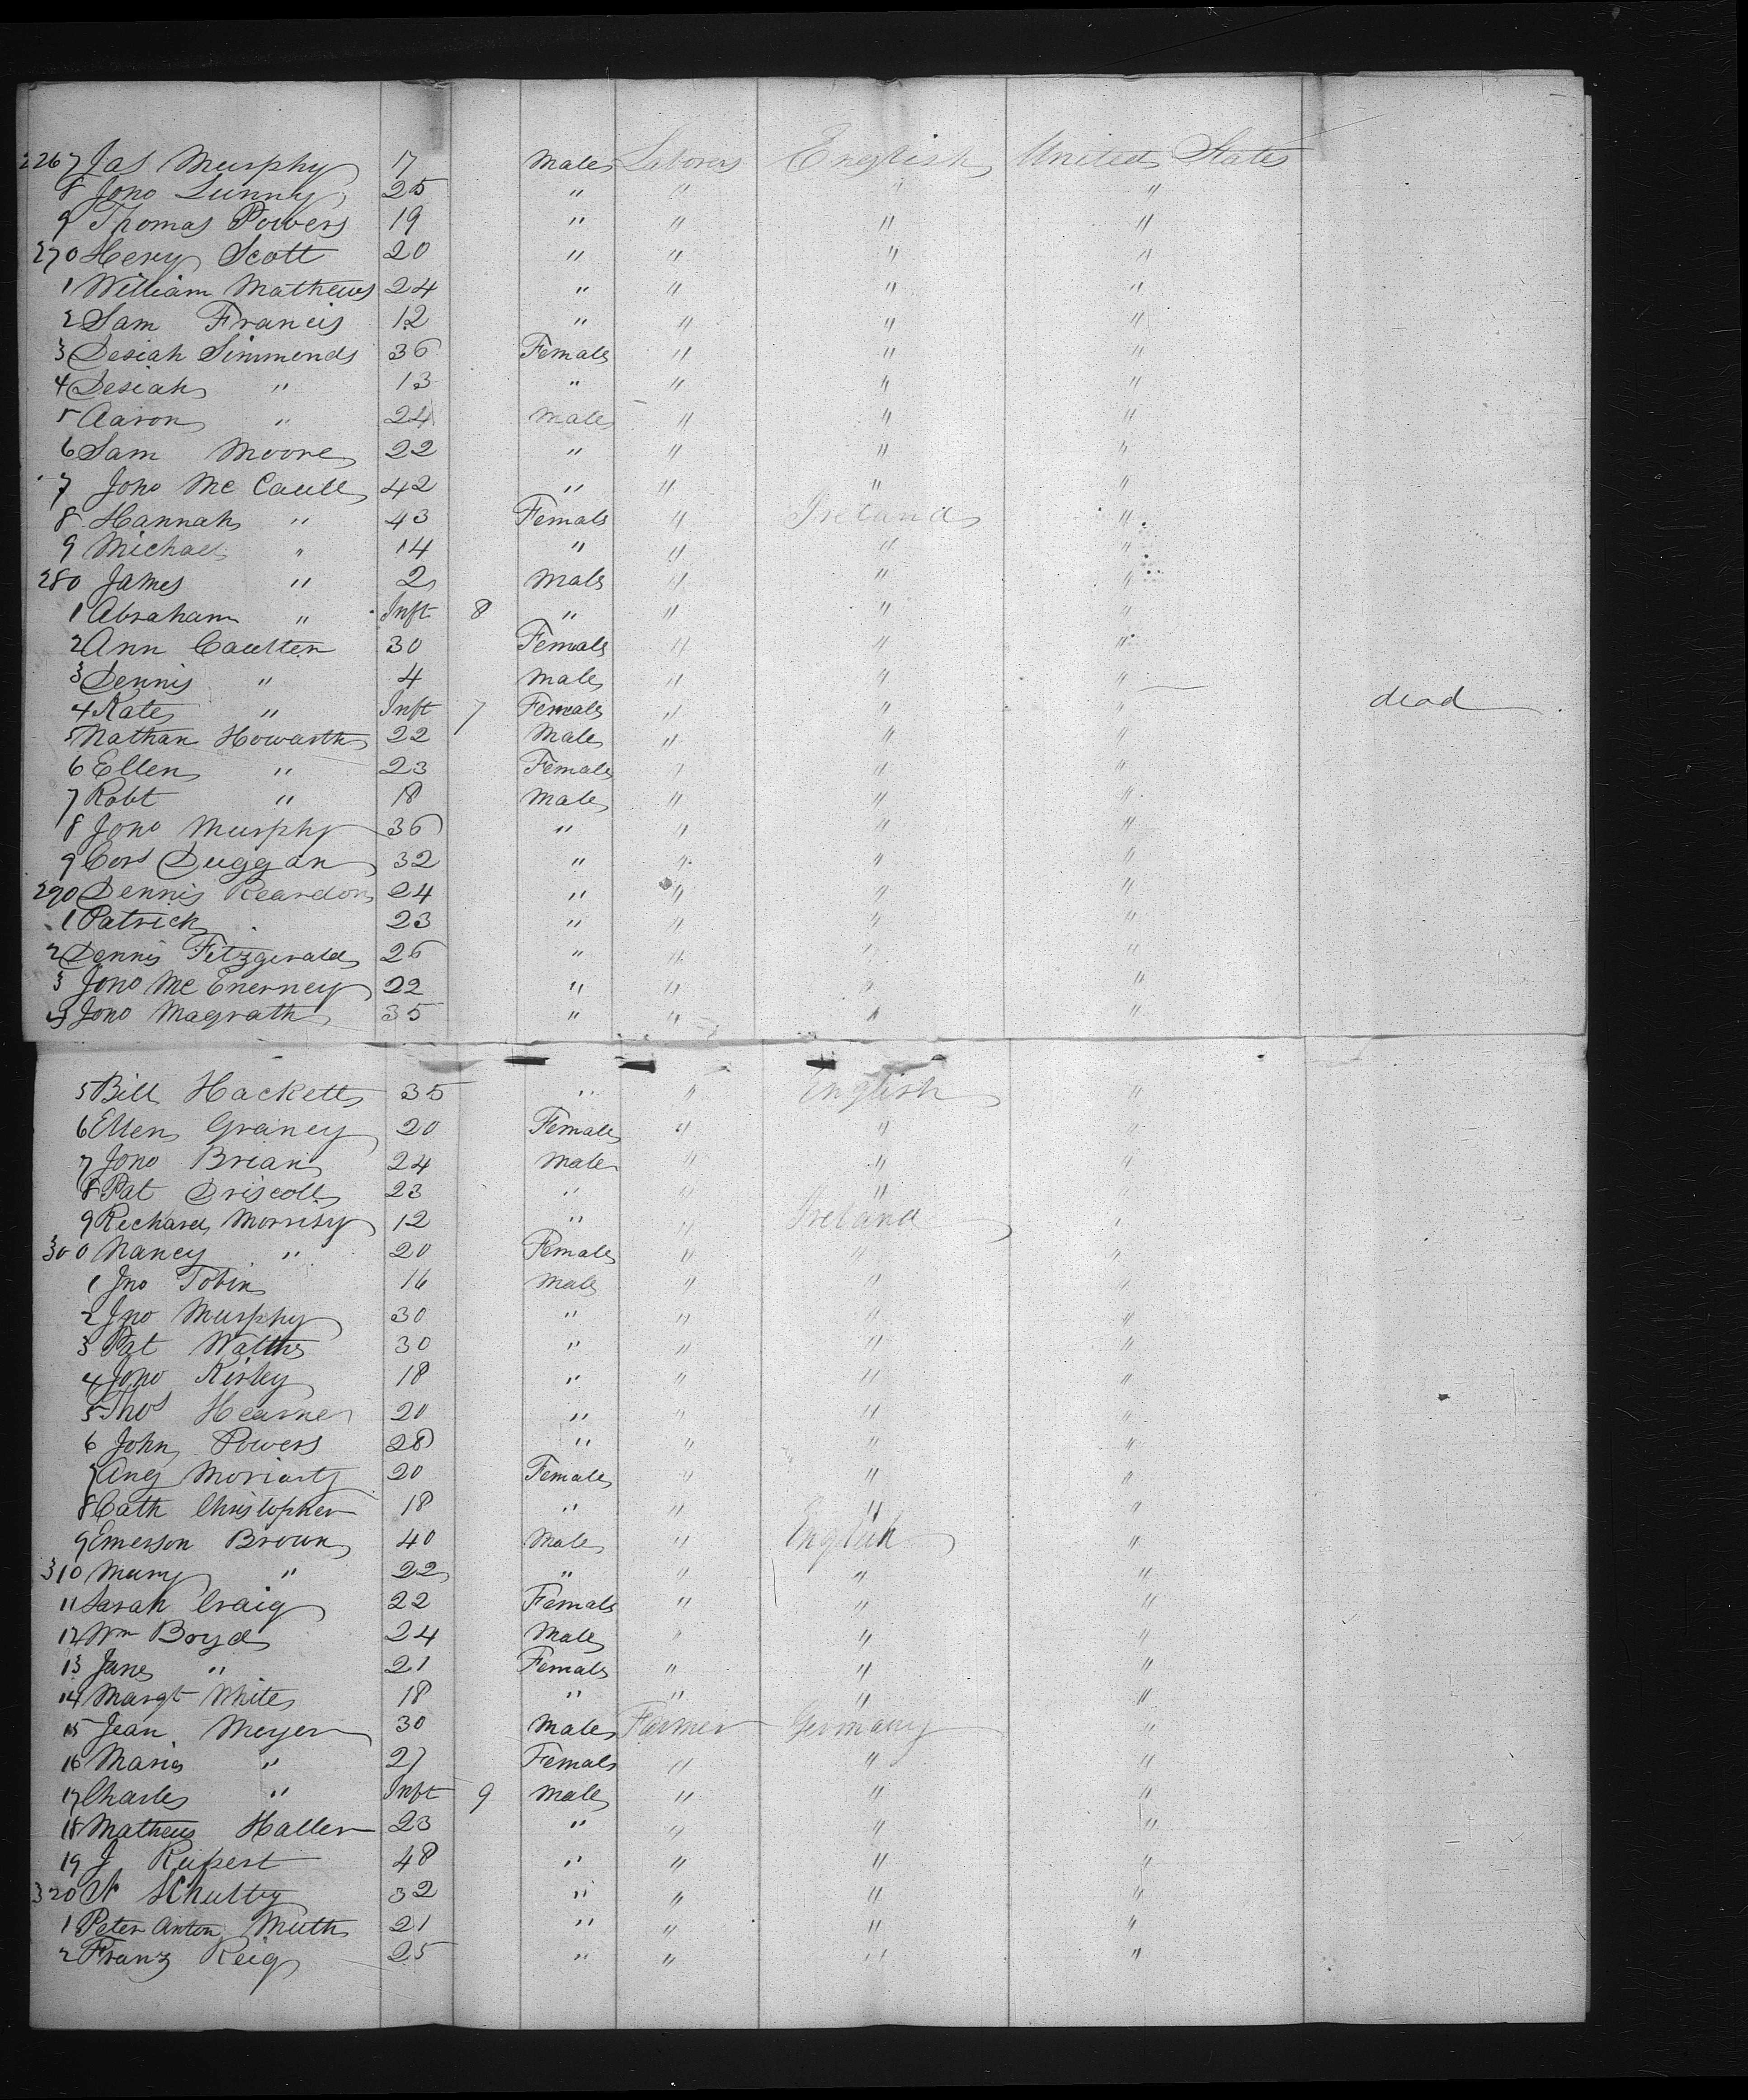 2267 Jas Murphy 17 Male Laborer English United States
8 Jono Lunny 25 " " " "
9 Thomas Powers 19 " " " "
270 Henry Scott 20 " " " "
1 William Mathews 24 " " " "
2 Sam Francis 12 " " " "
3 Desiah Simmonds 36 Female " " "
4 Desiah " 13 " " " "
5 Aaron " 24 Male " " "
6 Sam Moore 22 " " " "
7 Jono Mc Caull 42 " " " "
8 Hannah " 43 Female " Ireland "
9 Michael " 14 " " " "
280 James " 2 Male " " "
1 Abraham " Inft 8 " " " "
2 Ann Caulter 30 Female " " "
3 Dennis " 4 Male " " "
4 Kate " Inft 7 Female " " " dead
5 Nathan Howarth 22 Male " " "
6 Ellen " 23 Female " " "
7 Robt " 18 Male " " "
8 Jono Murphy 36 " " " "
9 Cors Duggan 32 " " " "
290 Dennis Reardon 24 " " " "
1 Patrick 23 " " " "
2 Dennis Fitzgerald 26 " " " "
3 Jono Mc Enerney 22 " " " "
4 Jono Magrath 35 " " " "
5 Bill Hackett 35 " " English "
6 Ellen Graney 20 Female " " "
7 Jono Brian 24 Male " " "
8 Pat Driscoll 23 " " " "
9 Richard Morrisy 12 " " Ireland "
300 Nancy " 20 Female " " "
1 Jno Tobin 16 Male " " "
2 Jno Murphy 30 " " " "
3 Pat Walths 30 " " " "
4 Jono Kirley 18 " " " "
5 Thos Hearne 20 " " " "
6 John Powers 28 " " " "
7 Ang Moriarty 20 Female " " "
8 Cath Christopher 18 " " " "
9 Emerson Brown 40 Male " English "
310 Mary " 22 " " " "
11 Sarah Craig 22 Female " " "
12 Wm Boyd 24 Male " " "
13 Jane " 21 Female " " "
14 Margt White 18 " " " "
15 Jean Meyer 30 Male Farmer Germany "
16 Maria " 27 Female " " "
17 Charles " Inft 9 Male " " "
18 Matheus Haller 23 " " " "
19 J Rupert 48 " " " "
320 N Schultz 32 " " " "
1 Peter Anton Muth 21 " " " "
2 Franz Reig 25 " " " "